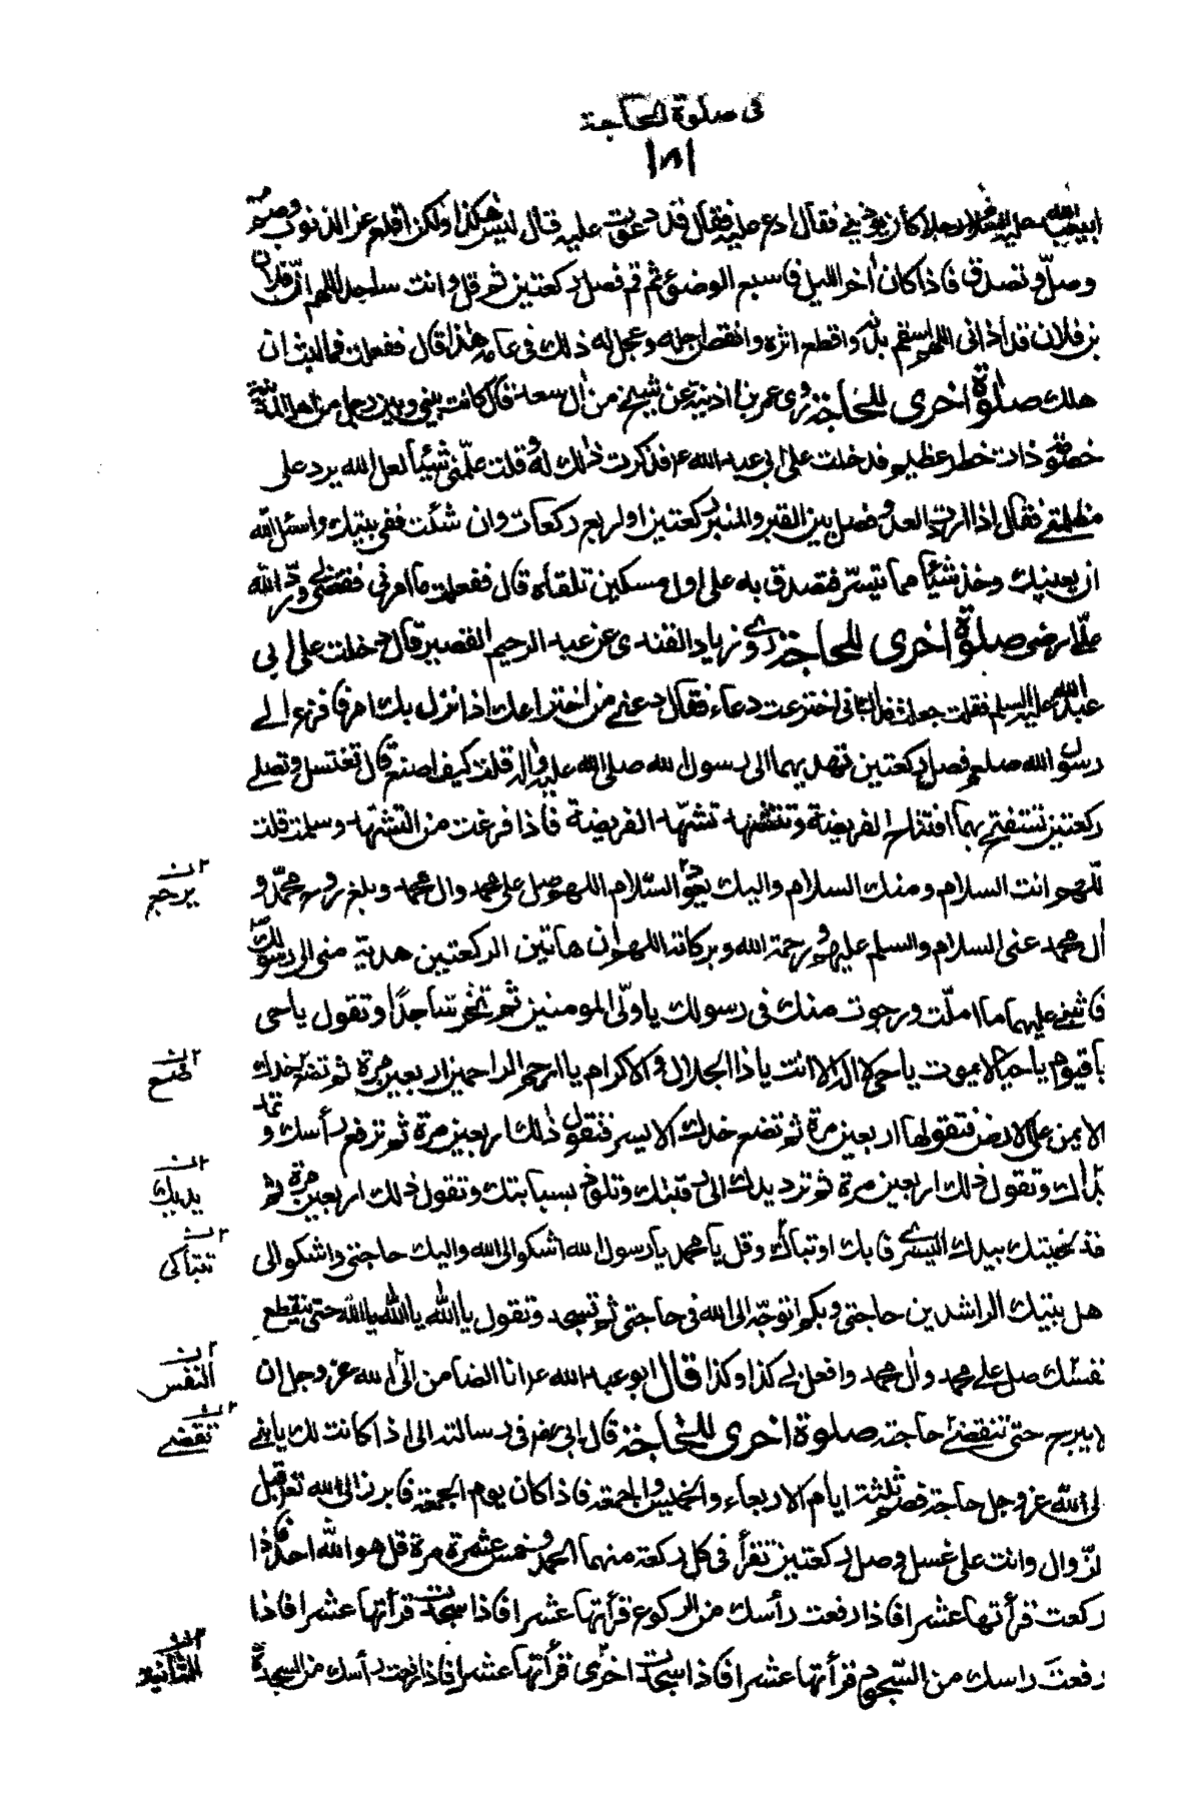 في صلوة الحاجة
١٨١
عليه السلام رجلا كان يؤذيني فقال ادع عليه فقال قد دعوت عليه قال ليس هكذا ولكن اقلع عن الذنوب وصم
وصلّ وتصدق فاذا كان اخر الليل فاسبغ الوضوء ثم قم فصل ركعتين ثم قل وانت ساجد اللهم انّ فلان
بن فلان قد اذاني اللهم اسقم بدنه واقطع اثره وانقص اجله وعجل له ذلك في عامه هذا قال ففعلت فما لبث ان
هلك صلوة اخرى للحاجة روى عمر بن اذينة عن شيخ من ال سعد قال كانت بيني وبين رجل من اهل المدينة
خصومة ذات خطر عظيم فدخلت على ابي عبد الله ع فذكرت ذلك له وقلت علّمني شيئا لعل الله يرد على
مظلمتي فقال اذا اردت العدو فصل بين القبر والمنبر ركعتين او اربع ركعات وان شئت ففي بيتك واسئل الله
ان يعينك وخذ شيئا مما تيسّر فتصدق به على اول مسكين تلقاه قال ففعلت ما امرني فقضى لي وردّ الله
علّي ارضى صلوة اخرى للحاجة روى زياد القندى عن عبد الرحيم القصير قال دخلت على ابي
عبد الله عليه السلم فقلت جعلت فداك اني اخترعت دعاء فقال دعني من اختراعك اذا نزل بك امر فافزع الى
رسول الله صلعم وصل ركعتين تهديهما الى رسول الله صلى الله عليه واله قلت كيف اصنع قال تغتسل وتصلي
ركعتين تستفتح بهما افتتاح الفريضة وتتشهد تشهّد الفريضة فاذا فرغت من التشهد وسلمت قلت
للّهم انت السلام ومنك السلام واليك يعود السّلام اللهم صل على محمد وال محمد وبلغ روح محمّد و
يرجع
ال محمد عنى السلام والسلم عليهم ورحمة الله وبركاته اللهم ان هاتين الركعتين هدية منى الى رسولك
فاثبني عليهما ما املّت ورجوت منك في رسولك يا ولّى المومنين ثم تخر ساجدا وتقول يا حى
يا قيوم يا حيا لا يموت يا حى لا اله الا انت يا ذا الجلال والاكرام يا ارحم الراحمين اربعين مرة ثم تضع خدك
ضع
الايمن على الارض فتقولها اربعين مرة ثم تضع خدك الايسر فتقول ذلك اربعين مرة ثم ترفع رأسك و تمد
يدك وتقول ذلك اربعين مرة ثم ترد يدك الى رقبتك وتلوذ بسبابتك وتقول ذلك اربعين مرة ثم
يديك
خذ لحيتك بيدك اليسرى فابك او تباك وقل يا محمد يا رسول الله اشكو الى الله واليك حاجتي واشكو الى
تتباكى
هل بيتك الراشدين حاجتي وبكم اتوجّه الى الله في حاجتي ثم تسجد وتقول يا الله يا الله يا الله حتى ينقطع
نفسك صل على محمد وال محمد وافعل بي كذا وكذا قال ابو عبد الله ع انا الضامن الى الله عز وجل ان
النفس
لا يبرح حتى تنقضى حاجته صلوة اخرى للحاجة قال ابى رض في رسالته الى اذا كانت لك يا بني
تقضى
لى الله عز وجل حاجة فصم ثلثة ايام الاربعاء والخميس والجمعة فاذا كان يوم الجمعة فابرز الى الله تعالى قبل
لزّوال وانت على غسل وصل ركعتين تقرأ في كل ركعة منهما الحمد وخمس عشرة مرة قل هو الله احد فاذا
ركعت قرأتها عشرا فاذا رفعت رأسك من الركوع قرأتها عشرا فاذا سجدت قرأتها عشرا فاذا
رفعت راسك من السّجود قرأتها عشرا فاذا سجدت اخرى قرأتها عشرا فاذا رفعت رأسك من السجدة
الثانية